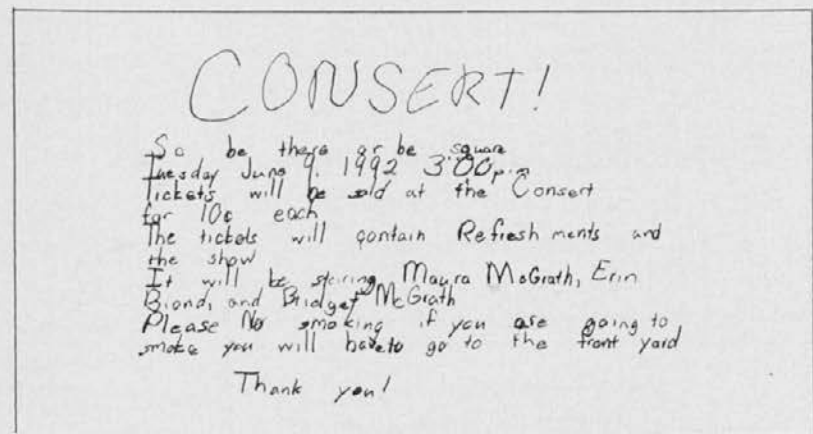 CONSERT!
So be there or be square
Tuesday June 9, 1992 3:00 p.m
Tickets will be sold at the Consert
for 10¢ each
The tickets will contain Refresh ments and
the show
It will be staring Maura McGrath, Erin
Biondi and Bridget McGrath
Please No smoking if you are going to
smoke you will have to go to the front yard
Thank you!